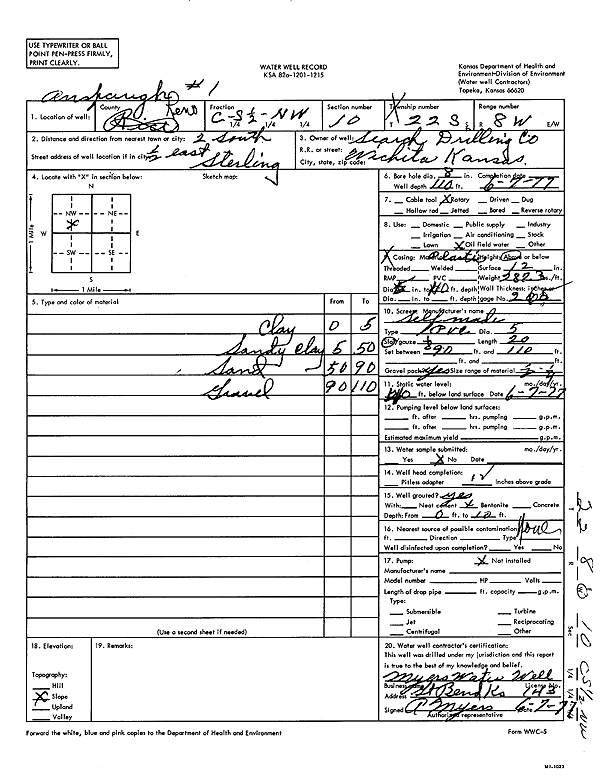 USE TYPEWRITER OR BALL
POINT PEN-PRESS FIRMLY,
PRINT CLEARLY.
WATER WELL RECORD
KSA 82a-1201-1215
Kansas Department of Health and
Environment-Division of Environment
(Water well Contractors)
Topeka, Kansas 66620
#1
1. Location of well: County Rice Reno Fraction C-S½-NW 1/4 1/4 1/4 Section number 10 Township number T 22 S S Range number R 8 W E/W
2. Distance and direction from nearest town or city: 2 South
Street address of well location if in city: ½ east Sterling
3. Owner of well: Drilling Co
R.R. or street:
City, state, zip code: Wichita Kansas.
4. Locate with "X" in section below: Sketch map:
N
NW NE
W X E
SW SE
S
1 Mile
1 Mile
5. Type and color of material From To
Clay 0 5
Sandy Clay 5 50
Sand 50 90
Gravel 90 110
(Use a second sheet if needed)
6. Bore hole dia. 8 in. Completion date
Well depth 110 ft. 6-7-77
7. Cable tool X Rotary Driven Dug
Hollow rod Jetted Bored Reverse rotary
8. Use: Domestic Public supply Industry
Irrigation Air conditioning Stock
Lawn X Oil field water Other
9. Casing: Material Plastic Height: Above or below
Threaded Welded Surface 12 in.
RMP PVC Weight 282.3 lbs./ft.
Dia. 5 in. to ft. depth Wall Thickness: inches or
Dia. in. to ft. depth gage No.
10. Screen: Manufacturer's name
Self made
Type Dia. 5
Slot/gauze Length 20
Set between 90 ft. and 110 ft.
ft. and ft.
Gravel pack? yes Size range of material
11. Static water level: mo./day/yr.
ft. below land surface Date 6-7-77
12. Pumping level below land surfaces:
ft. after hrs. pumping g.p.m.
ft. after hrs. pumping g.p.m.
Estimated maximum yield g.p.m.
13. Water sample submitted: mo./day/yr.
Yes X No Date
14. Well head completion:
Pitless adapter 12 Inches above grade
15. Well grouted? yes
With: Neat cement X Bentonite Concrete
Depth: From 0 ft. to 10 ft.
16. Nearest source of possible contamination:
ft. Direction Type
Well disinfected upon completion? Yes No
17. Pump: X Not installed
Manufacturer's name
Model number HP Volts
Length of drop pipe ft. capacity g.p.m.
Type:
Submersible Turbine
Jet Reciprocating
Centrifugal Other
18. Elevation: 19. Remarks:
Topography:
Hill
X Slope
Upland
Valley
20. Water well contractor's certification:
This well was drilled under my jurisdiction and this report
is true to the best of my knowledge and belief.
Myers Water Well
Business name License No.
Address Gt Bend Ks 143
Signed Myers Date 6-7-77
Authorized representative
Forward the white, blue and pink copies to the Department of Health and Environment
Form WWC-5
T 22 R 8 W Sec 10 1/4 1/4 1/4 CS½ NW